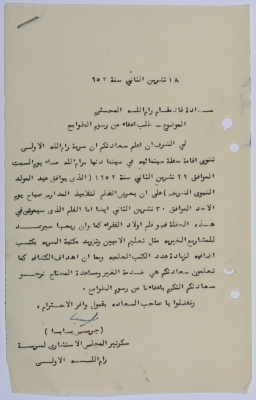 ١٨ تشرين الثاني سنة ٩٥٢
سعادة قائمقام رام الله المحترم
الموضوع - طلب اعفاء من رسوم الطوابع
لي الشرف ان اعلم سعادتكم ان سرية رام الله الاولى
تنوي اقامة حفلة سينمائية في سينما دنيا برام الله مساء يوم السبت
الموافق ٢٩ تشرين الثاني سنة ١٩٥٢ ( الذي يوافق عيد المولد
النبوي الشريف ) على ان يعرض الفلم لتلاميذ المدارس صباح يوم
الاحد الموافق ٣٠ تشرين الثاني ايضا اما الفلم الذي سيعرض في
هذه الحفلة فهو فلم اولاد الفقراء كما وان ريعها سيرصد
للمشاريع الخيرية مثل تعليم الاميين وتزويد مكتبة السرية بكتب
اضافية لزيادة عدد الكتب العلمية وبما ان اهداف الكشافة كما
تعلمون سعادتكم هي خدمة الغير ومساعدة المحتاج نرجو
سعادتكم التكرم باعفائنا من رسوم الطوابع .
وتفضلوا يا صاحب السعادة بقبول وافر الاحترام ،
( جريس بابا )
سكرتير المجلس الاستشاري لسرية
رام الله الاولى